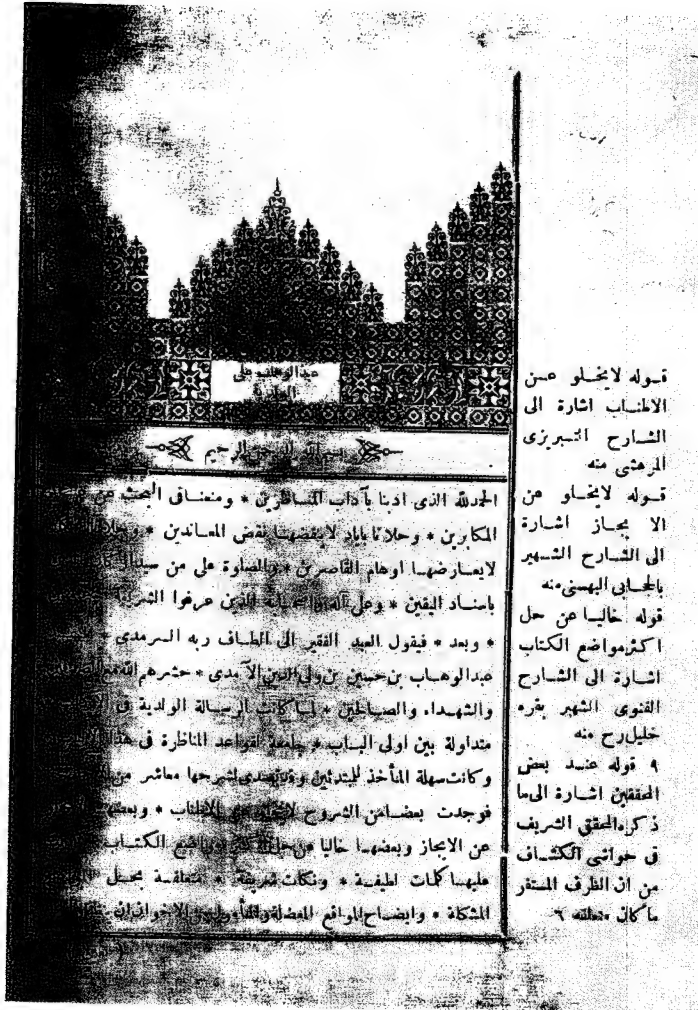 عبدالوهاب على
الولدية
بسم الله الرحمن الرحيم
الحمدلله الذى ادبنا بآداب المناظرين * ومنعنا فى البحث عن
المكابرين * وحلانا باياد لاينقضها نقض المعاندين *
لايعارضها اوهام القاصرين * والصلوة على من
باسناد اليقين * وعلى آله الذين عرفوا
* وبعد * فيقول العبد الفقير الى الطاف ربه السرمدى *
عبدالوهاب بن حسين بن ولى الدين الآمدى * حشرهم الله
والشهداء والصالحين * لما كانت الرسالة الولدية فى
متداولة بين اولى الباب * جامعة لقواعد المناظرة فى هذا
وكانت سهلة المأخذ للمبتدئين وقد تصدى لشرحها معاشر من
فوجدت بعضا من الشروح لايخلو عن الاطناب * وبعضها
عن الايجاز وبعضها خاليا عن حل اكثر مواضع الكتاب
عليها كلمات لطيفة * ونكات شريفة * متعلقة بحل
المشكلة * وايضاح المواقع المعضلة الاخوان ان
قوله لايخلو عن
الاطناب اشارة الى
الشارح التبريزى
المرعشى منه
قوله لايخلو عن
الا يجاز اشارة
الى الشارح الشهير
البهسنى منه
قوله خاليا عن حل
اكثر مواضع الكتاب
اشارة الى الشارح
القنوى الشهير بقره
خليل رح منه
٩ قوله عند بعض
المحققين اشارة الى ما
ذكره المحقق الشريف
فى حواشى الكشاف
من ان الظرف المستقر
ما كان متعلقه ٩